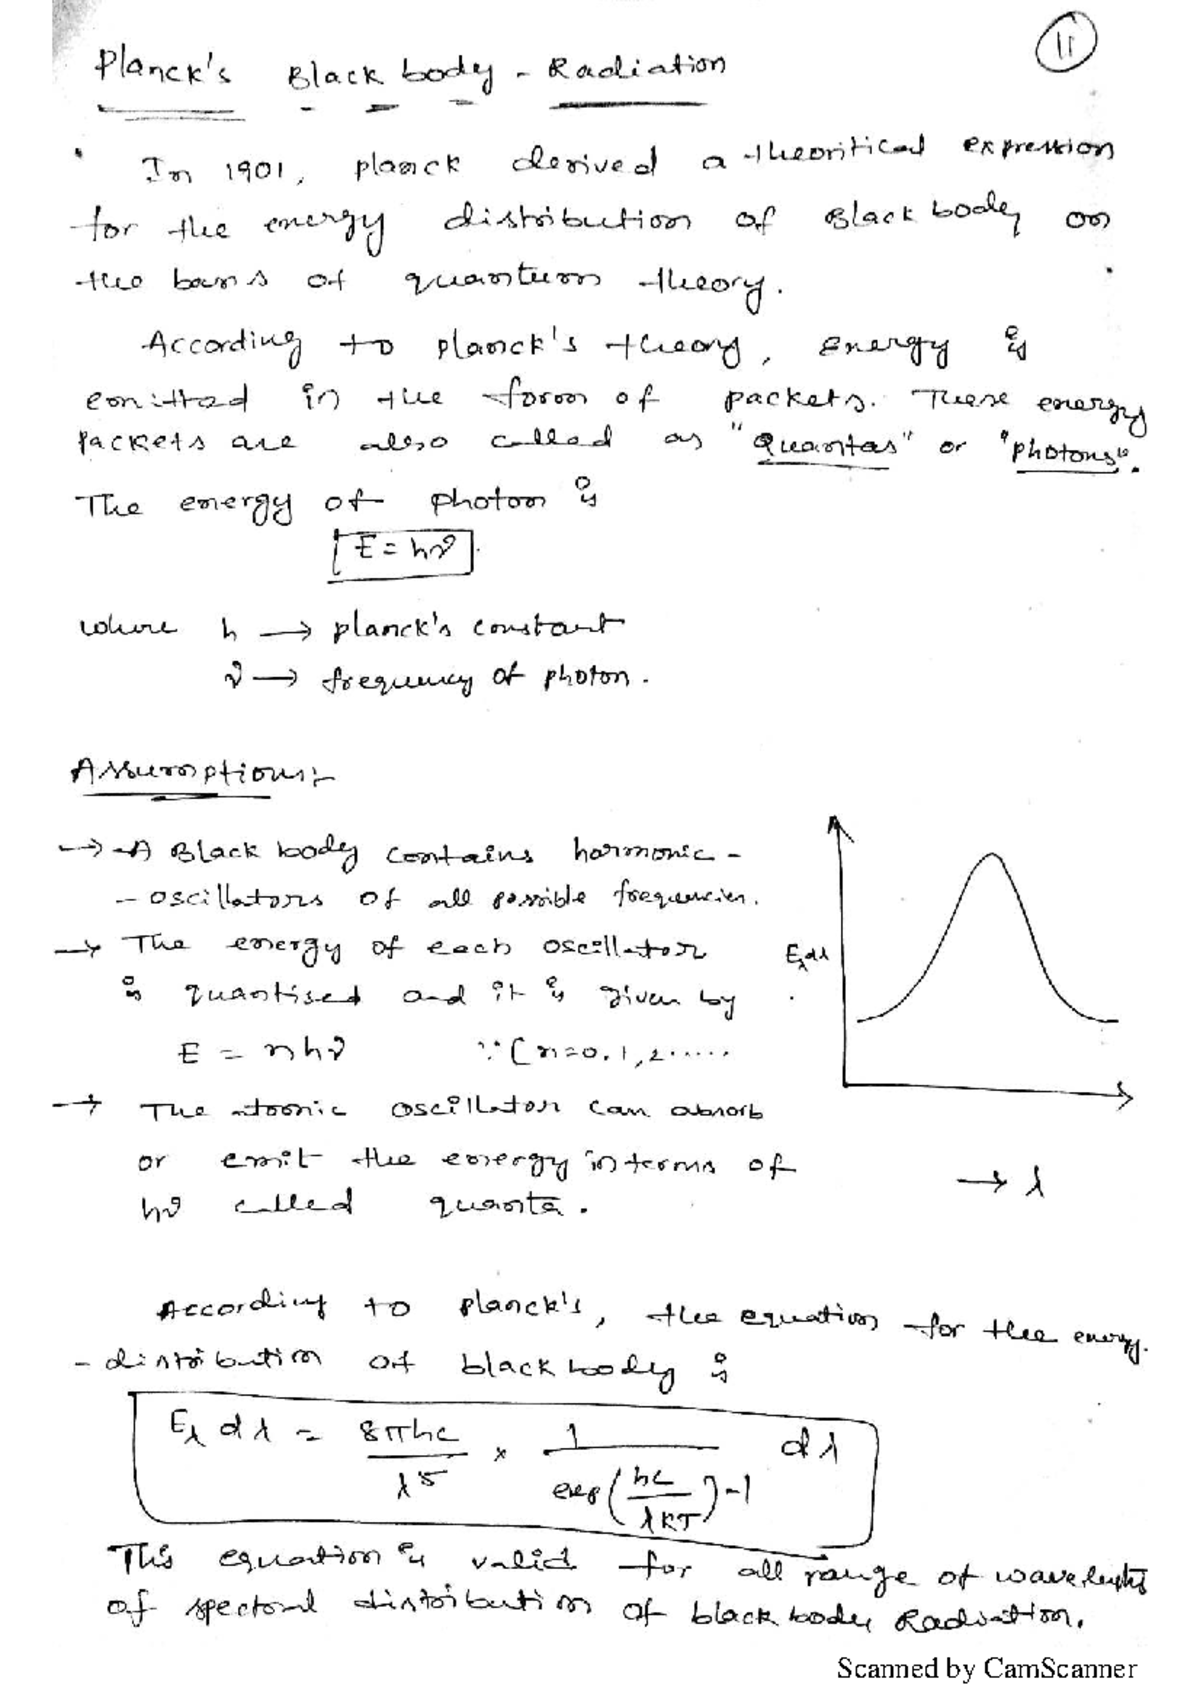 11
Planck's Black body - Radiation
In 1901, planck derived a theoritical expression
for the energy distribution of Black body on
the basis of quantum theory.
According to planck's theory, Energy is
emitted in the form of packets. These energy
packets are also called as "Quantas" or "photons".
The energy of photon is
E = hν
where h → planck's constant
ν → frequency of photon.
Assumptions:-
→ A Black body contains harmonic -
- oscillators of all possible frequencies.
→ The energy of each oscillator
is quantised and it is given by
E = nhν ∵ (n=0, 1, 2......
→ The atomic oscillator can absorb
or emit the energy in terms of
hν called quanta.
Eλdλ
→ λ
According to planck's, the equation for the energy.
- distribution of black body is
Eλ dλ = 8πhc/λ⁵ × 1/(exp(hc/λKT)-1) dλ
This equation is valid for all range of wavelengths
of spectral distribution of black body Radiation.
Scanned by CamScanner